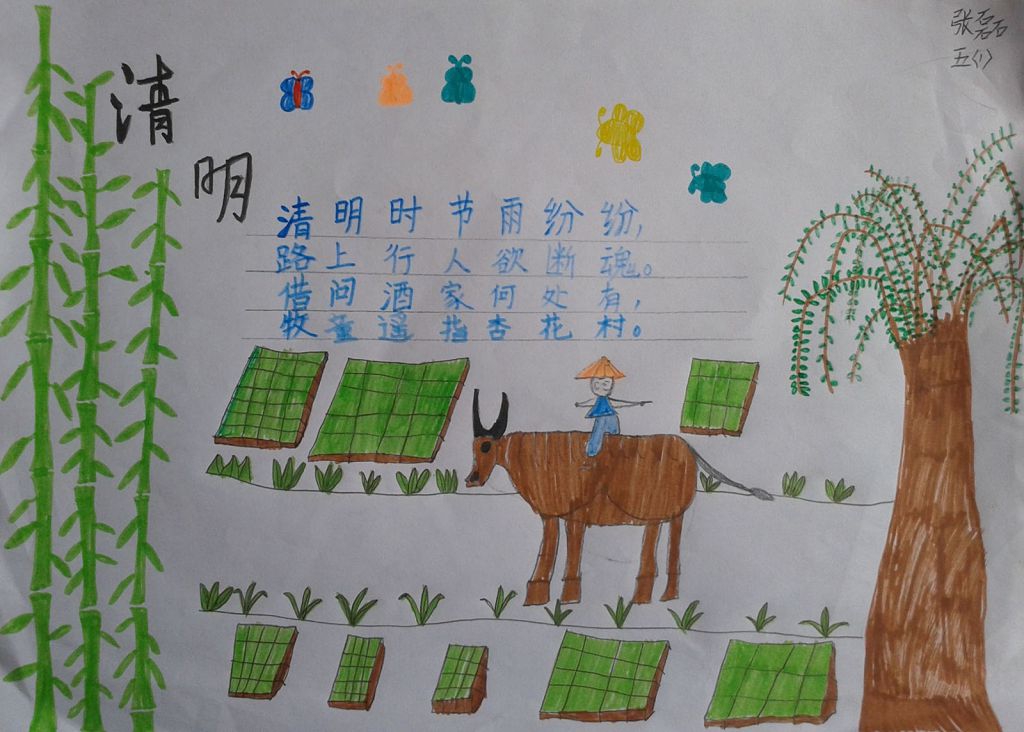 张磊
五(1)
清明
清明时节雨纷纷,
路上行人欲断魂。
借问酒家何处有,
牧童遥指杏花村。